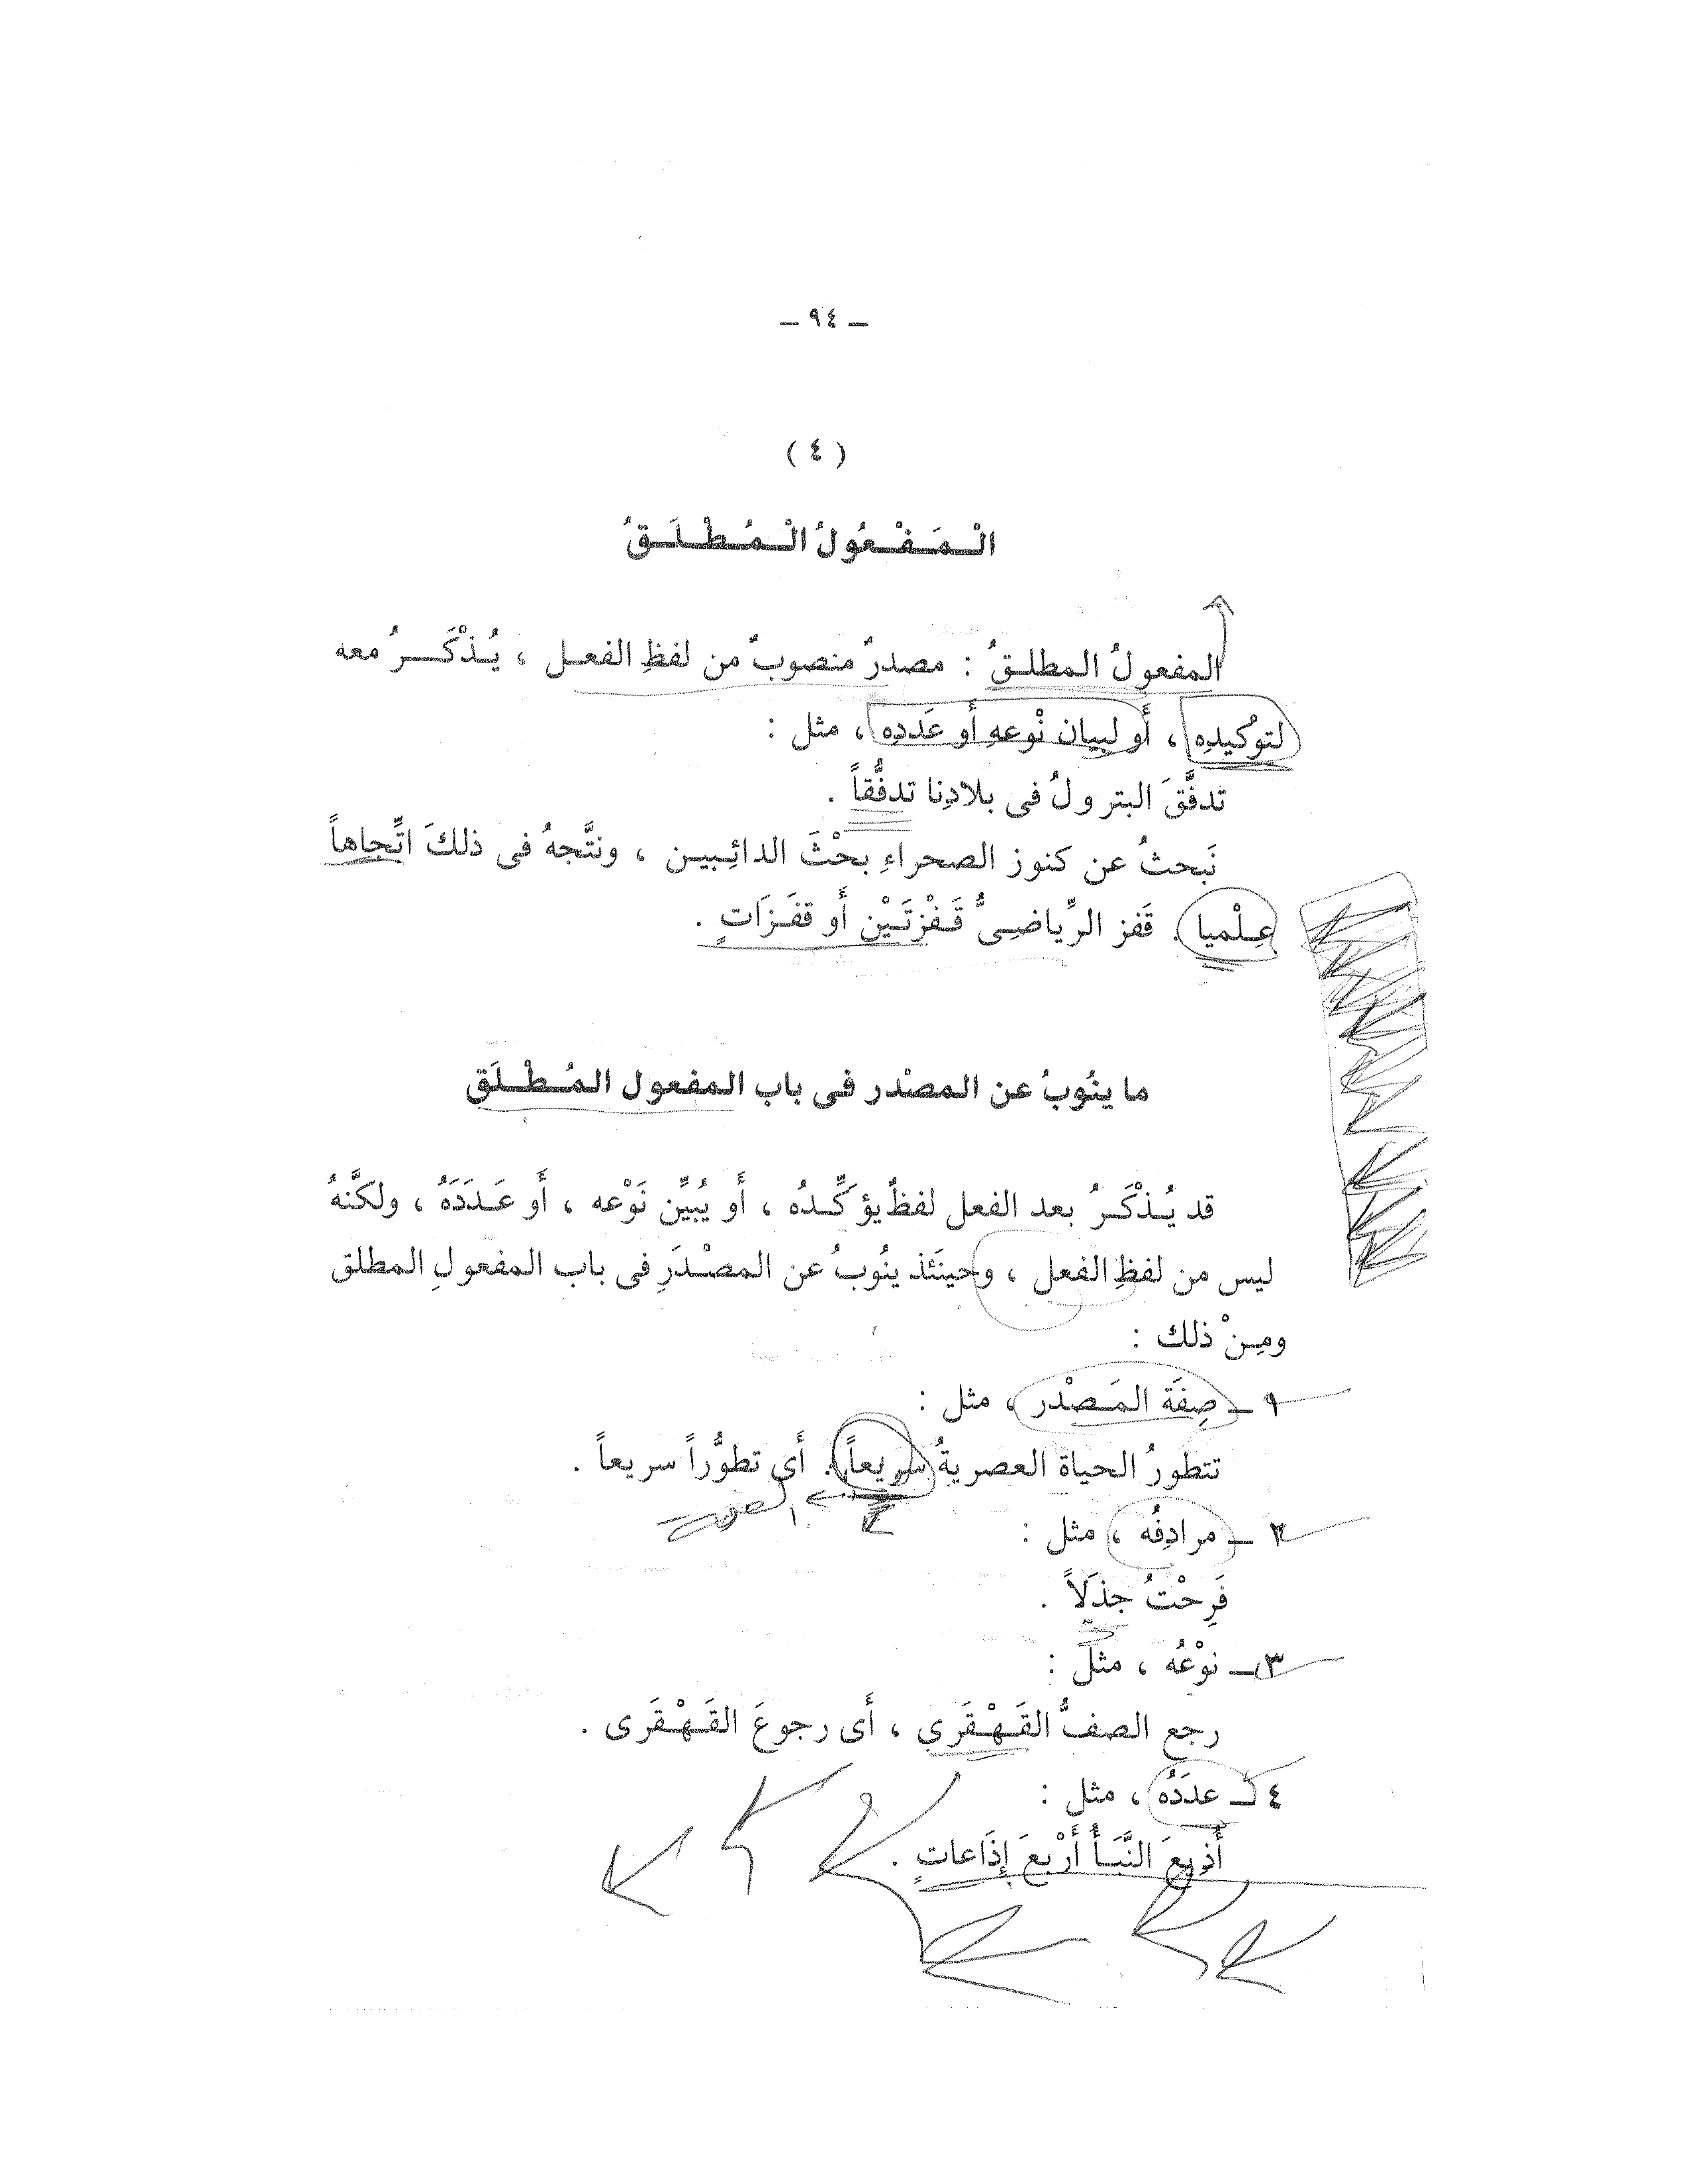 ـ ٩٤ ـ
( ٤ )
الْـمَـفْـعُولُ الْـمُـطْـلَـقُ
المفعولُ المطلـقُ : مصدرٌ منصوبٌ من لفظِ الفعـل ، يُـذْكَـــرُ معه
لتوْكيدِه ، أَو لبيان نْوعهِ أَو عَددِه ، مثل :
تدفَّقَ البترولُ فى بلادِنا تدفُّقاً .
نَبحثُ عن كنوز الصحراءِ بحْثَ الدائِـبيـن ، ونتَّجهُ فى ذلكَ اتِّجاهاً
عِـلْميا . قَفز الرِّياضـىُّ قَـفْزتَـيْن أَو قفَـزَاتٍ .
ما ينُوبُ عن المصْدر فى باب المفعول المُـطْـلَق
قد يُـذْكَـرُ بعد الفعل لفظٌ يؤَكِّـدُه ، أَو يُبيِّن نَوْعه ، أَو عَـدَدَهُ ، ولكنَّهُ
ليس من لفظِ الفعل ، وحينَئذ ينُوبُ عن المصْـدَرِ فى باب المفعولِ المطلق
ومِـنْ ذلك :
١ ـ صِفَة المَـصْدر ، مثل :
تتطورُ الحياة العصريةُ سريعاً . أَى تطوُّراً سريعاً .
٢ ـ مرادِفُه ، مثل :
فَرِحْتُ جذَلاً .
٣ ـ نوْعُه ، مثل :
رجع الصفُّ القَـهْـقَرى ، أَى رجوعَ القَـهْـقَرى .
٤ ـ عدَدُه ، مثل :
أُذِيعَ النَّبَـأُ أَرْبعَ إِذَاعاتٍ .